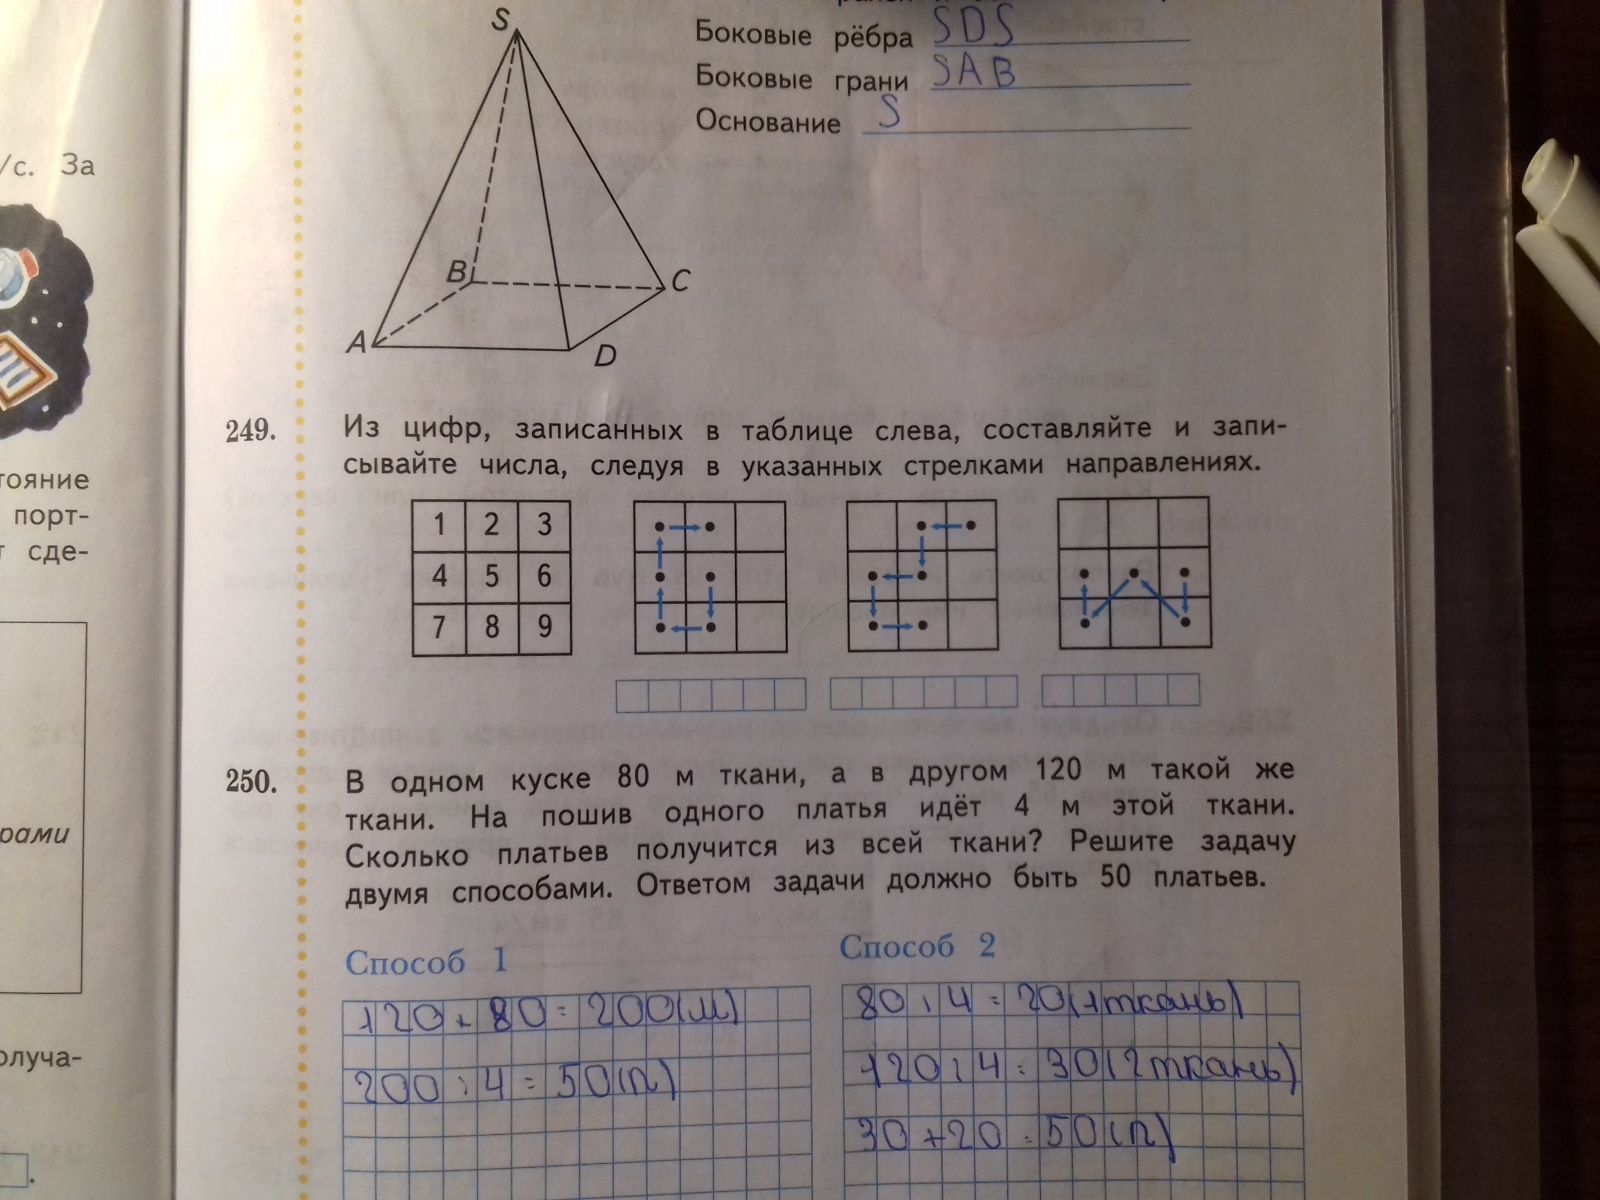 S
Боковые рёбра SDS
Боковые грани SAB
Основание S
/с. За
B
C
A
D
249. Из цифр, записанных в таблице слева, составляйте и запи-
сывайте числа, следуя в указанных стрелками направлениях.
1 2 3
4 5 6
7 8 9
тояние
порт-
т сде-
250. В одном куске 80 м ткани, а в другом 120 м такой же
ткани. На пошив одного платья идёт 4 м этой ткани.
Сколько платьев получится из всей ткани? Решите задачу
двумя способами. Ответом задачи должно быть 50 платьев.
рами
Способ 1
120 + 80 = 200(м)
200 : 4 = 50(п)
Способ 2
80 : 4 = 20(1ткань)
120 : 4 = 30(2ткань)
30 + 20 = 50(п)
олуча-